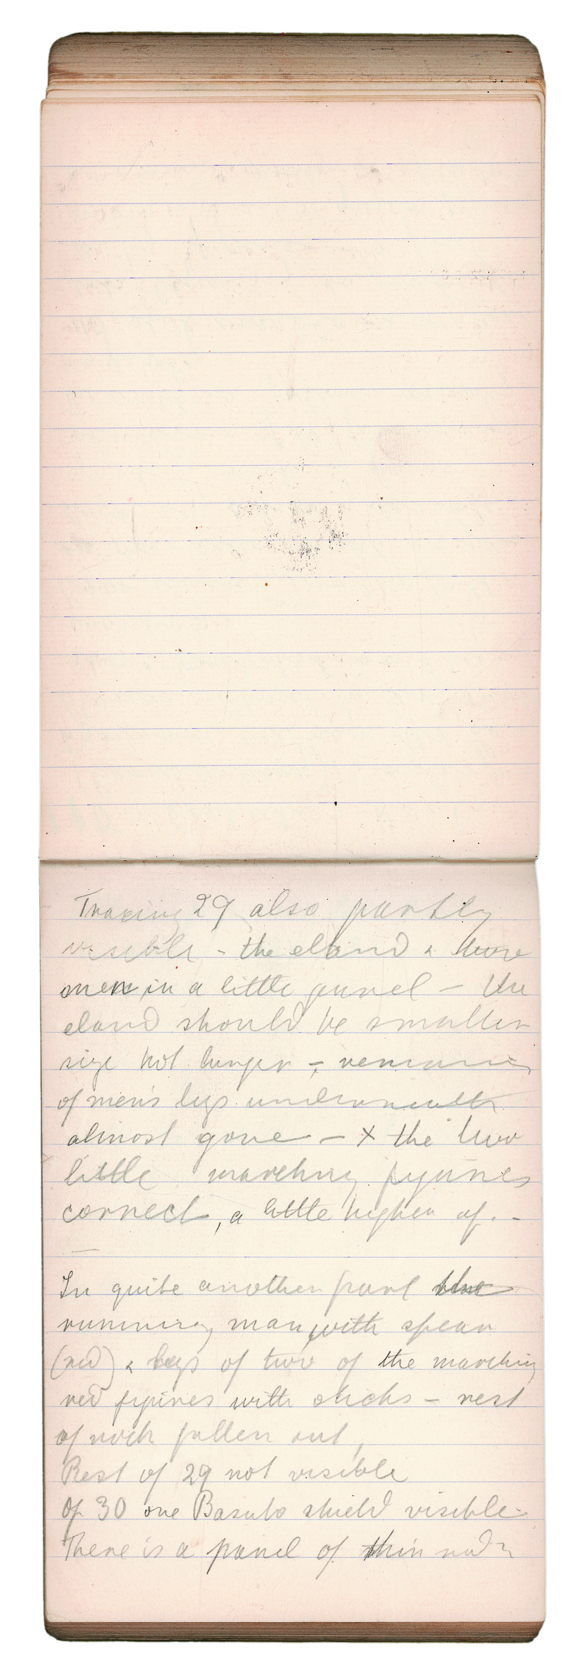 Tracing 29 also partly
visible - the eland & three
men in a little panel - the
eland should be smaller
size not larger -, remains
of men's legs underneath
almost gone - X the two
little marching figures
correct, a little higher up. -
In quite another part the
running man, with spear
(red) & legs of two of the marching
red figures with sticks - rest
of rock fallen out,
Rest of 29 not visible
Of 30 one Basuto shield visible.
There is a panel of thin red